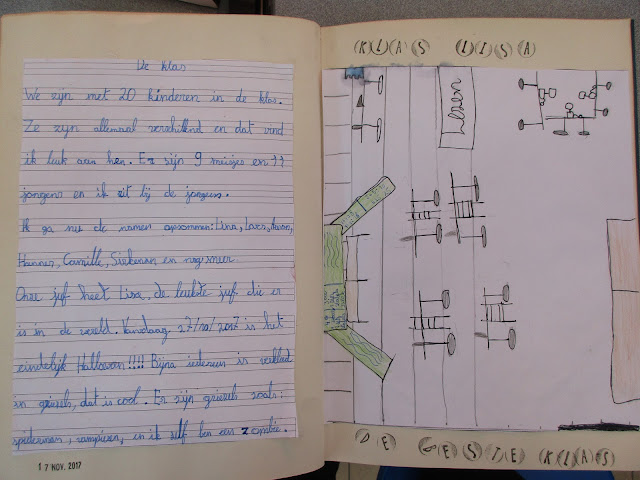 De klas
We zijn met 20 kinderen in de klas.
Ze zijn allemaal verschillend en dat vind
ik leuk aan hen. Er zijn 9 meisjes en 11
jongens en ik zit bij de jongens.
Ik ga nu de namen opsommen: Lina,
Hanner, Camille, en nog meer.
Onze juf heet Lisa, de leukste juf die er
is in de wereld. Vandaag 27/10/2017 is het
eindelijk Hallowan!!!! Bijna iedereen is verkleed
in griezels, dat is cool. Er zijn griezels zoals:
spiderman, vampieren, en ik zelf ben een zombie.
17 NOV. 2017
KLAS LISA
Lezen
DE GESTE KLAS